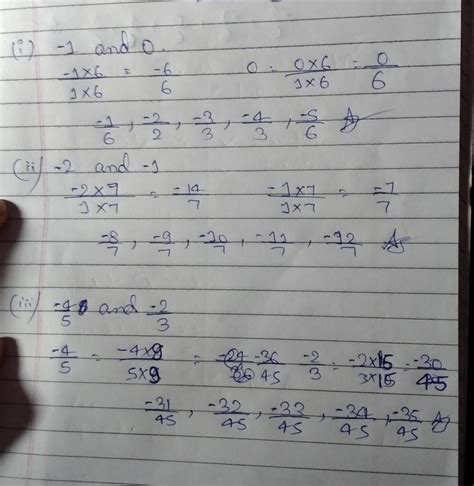 (i) -1 and 0.
-1×6/1×6 = -6/6   0 = 0×6/1×6 = 0/6
-1/6, -2/2, -3/3, -4/3, -5/6
(ii) -2 and -1
-2×7/1×7 = -14/7   -1×7/1×7 = -7/7
-8/7, -9/7, -10/7, -11/7, -12/7
(iii) -4/5 and -2/3
-4/5 = -4×9/5×9 = -36/45   -2/3 = -2×15/3×15 = -30/45
-31/45, -32/45, -33/45, -34/45, -35/45